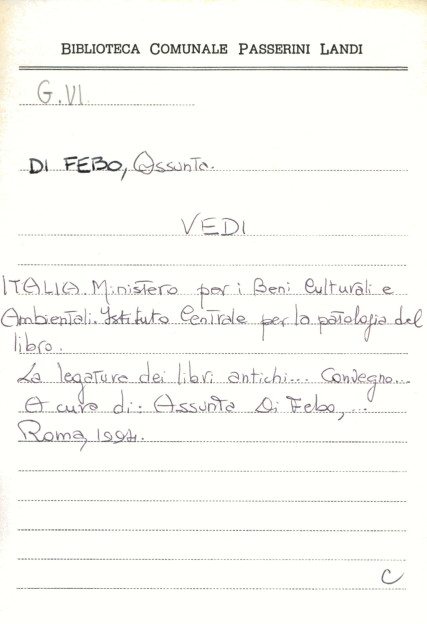 BIBLIOTECA COMUNALE PASSERINI LANDI
G.VI.
DI FEBO, Assunta.
VEDI
ITALIA. Ministero per i Beni Culturali e
Ambientali. Istituto Centrale per la patologia del
libro.
La legatura dei libri antichi... Convegno...
A cura di: Assunta Di Febo,...
Roma,
C